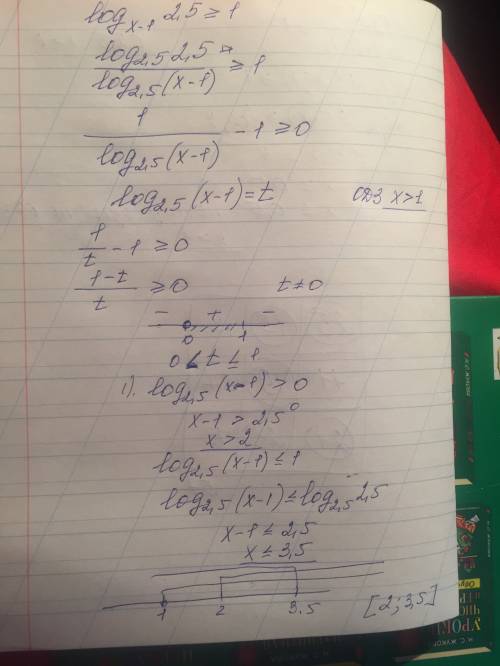 log_{x-1} 2,5 ≥ 1
log_{2,5} 2,5 / log_{2,5}(x-1) ≥ 1
1 / log_{2,5}(x-1) - 1 ≥ 0
log_{2,5}(x-1) = t ОДЗ x>1
1/t - 1 ≥ 0
(1-t)/t ≥ 0 t ≠ 0
- + -
0 1
0 < t ≤ 1
1). log_{2,5}(x-1) > 0
x-1 > 2,5^0
x > 2
log_{2,5}(x-1) ≤ 1
log_{2,5}(x-1) ≤ log_{2,5} 2,5
x-1 ≤ 2,5
x ≤ 3,5
1 2 3.5 [2; 3,5]
УРОКИ